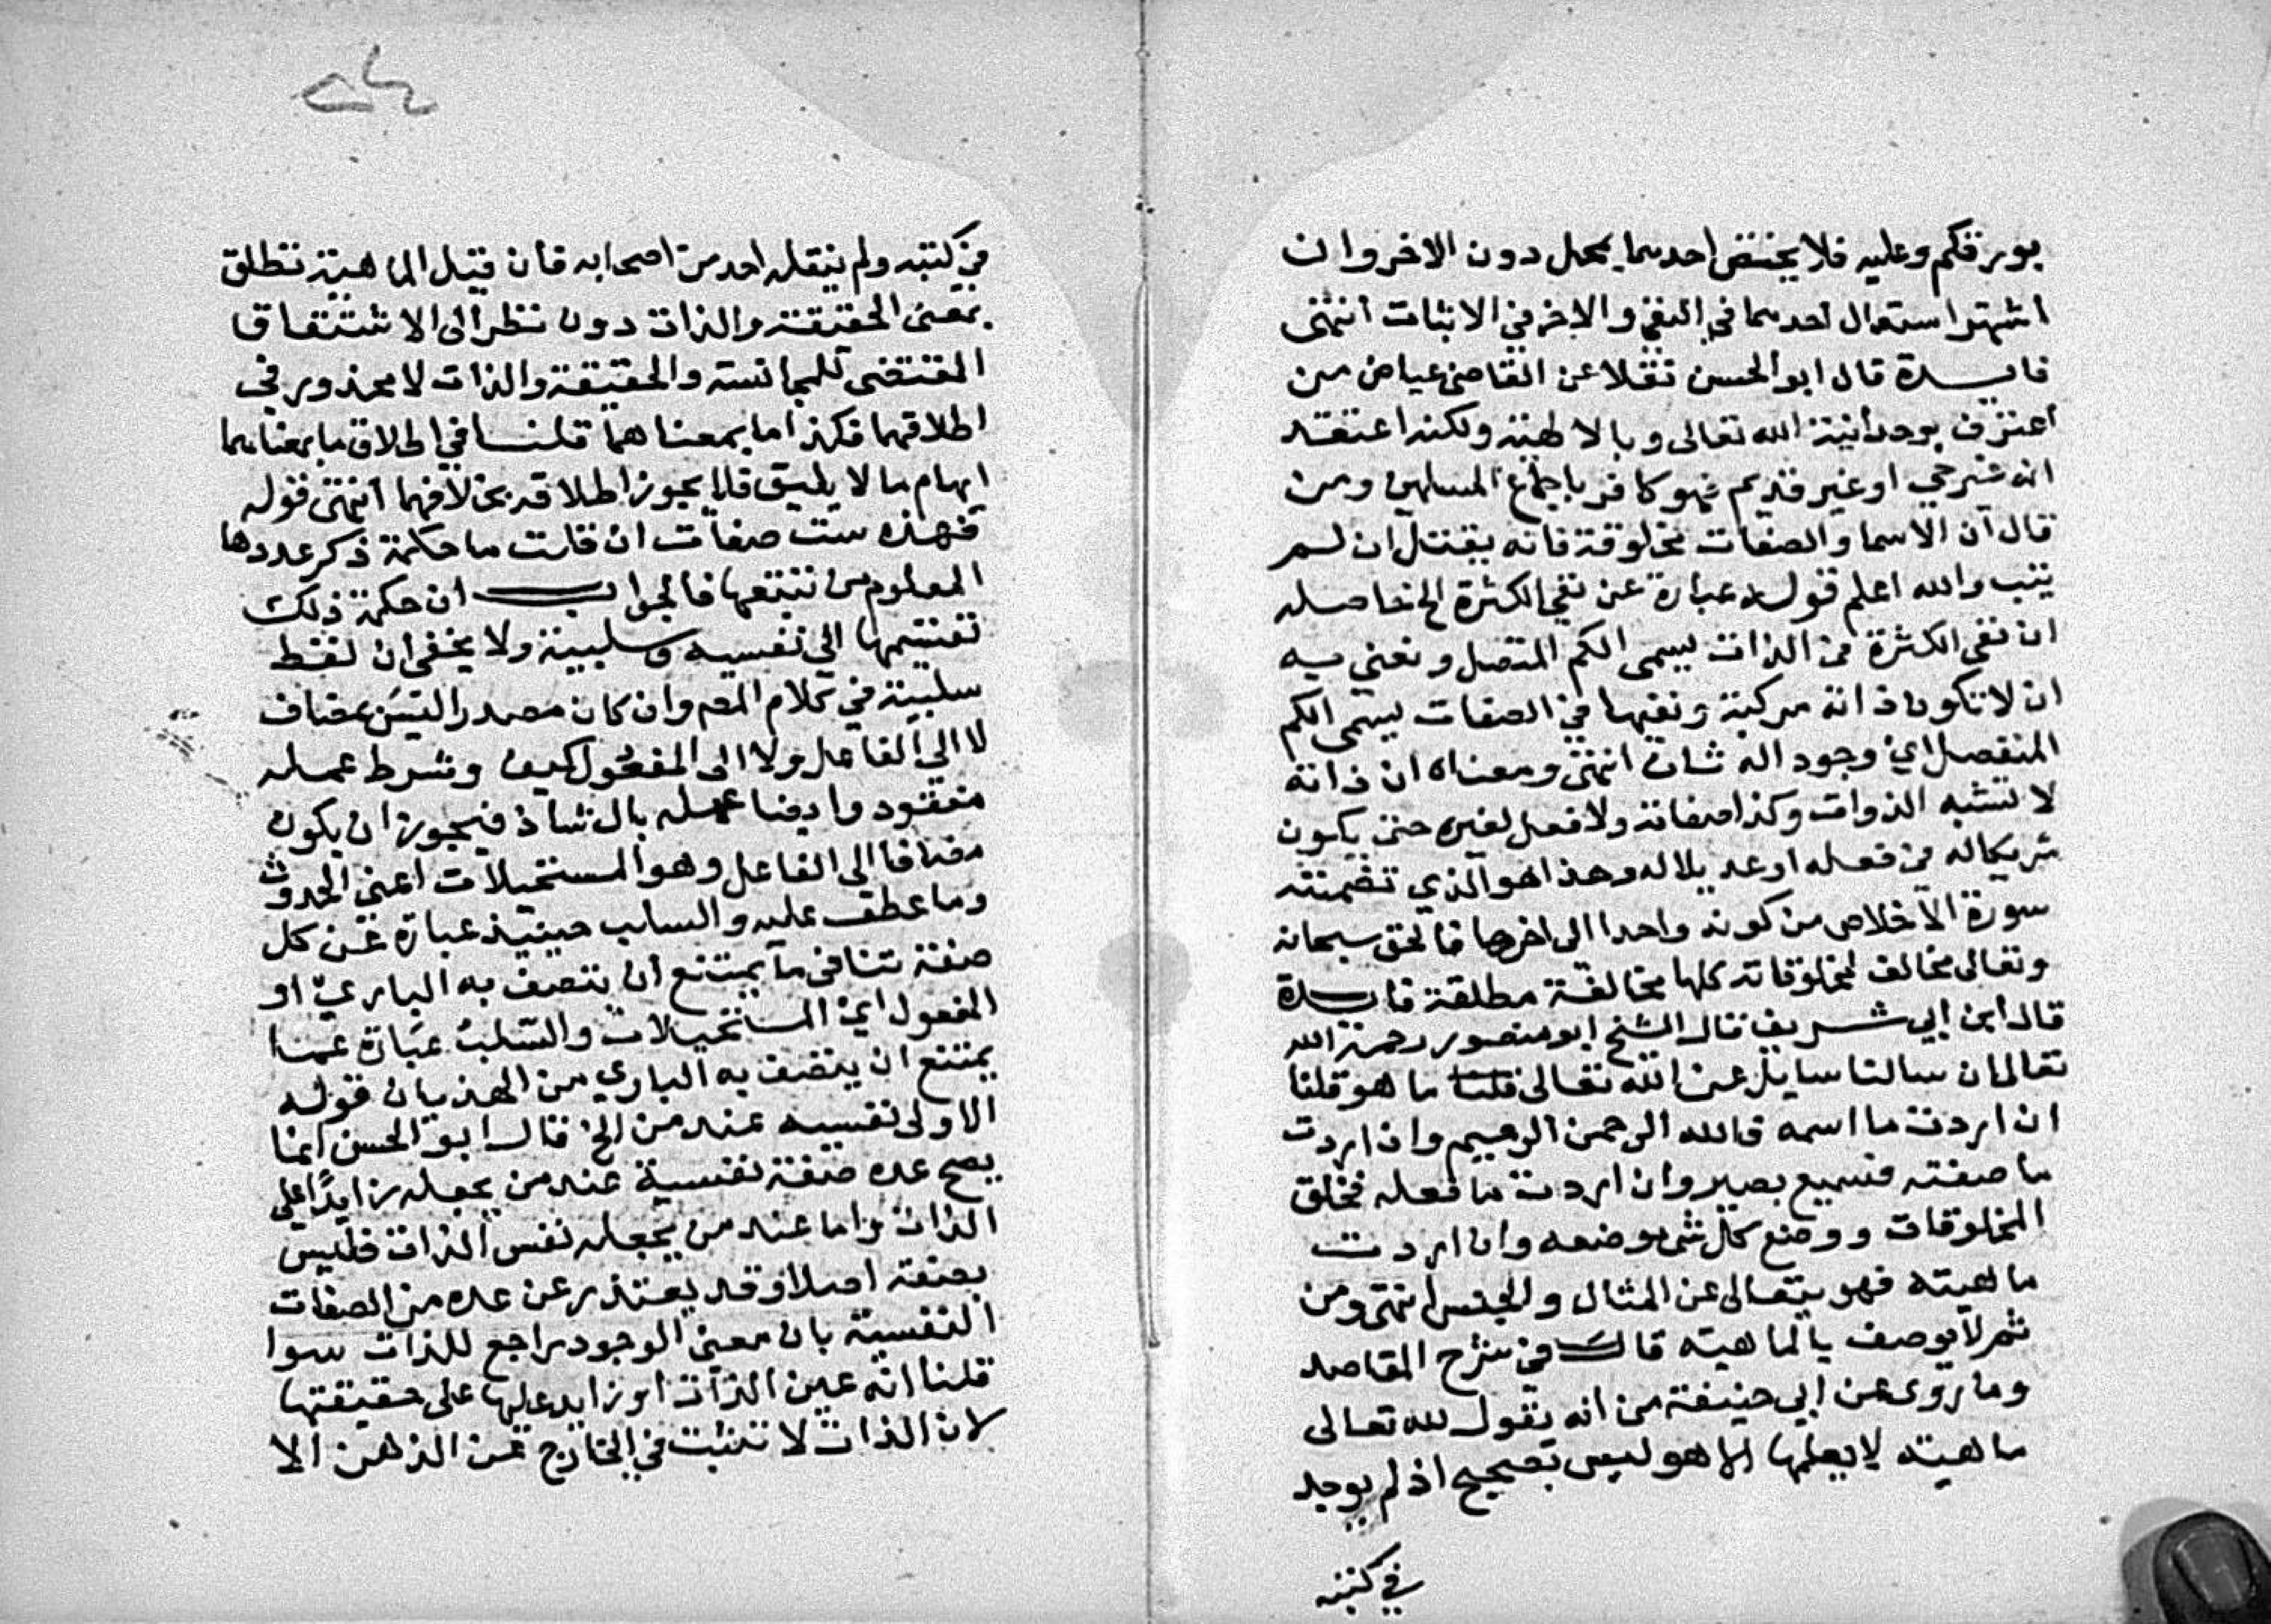 بورقكم وعليه فلا يختص احدهما بمحل دون الاخر وان
اشتهر استعمال احدهما في النفي والاخر في الاثبات انتهى
فايدة قال ابو الحسن نقلا عن القاضي عياض من
اعترف بوحدانية الله تعالى وبالالهية ولكنه اعتقد
انه غير حي او غير قديم فهو كافر باجماع المسلمين ومن
قال ان الاسما والصفات مخلوقة فانه يقتل ان لم
يتب والله اعلم قوله عبارة عن نفي الكثرة الخ حاصله
ان نفي الكثرة من الذات يسمى الكم المتصل ونعني به
ان لا تكون ذاته مركبة ونفيها في الصفات يسمى الكم
المنفصل اي وجود اله ثان انتهى ومعناه ان ذاته
لا تشبه الذوات وكذا صفاته ولا فعل لغيره حتى يكون
شريكا له من فعله او عديلا له وهذا هو الذي تضمنته
سورة الاخلاص من كونه واحدا الى اخرها فالحق سبحانه
وتعالى مخالف لمخلوقاته كلها مخالفة مطلقة فايدة
قال ابن ابي شريف قال الشيخ ابو منصور رحمه الله
تعالى ان سالنا سايل عن الله تعالى قلنا ما هو قلنا
ان اردت ما اسمه فالله الرحمن الرحيم وان اردت
ما صفته فسميع بصير وان اردت ما فعله فخلق
المخلوقات ووضع كل شي موضعه وان اردت
ماهيته فهو يتعالى عن المثال والجنس انتهى ومن
ثم لا يوصف بالماهية قال في شرح المقاصد
وما روى عن ابي حنيفة من انه يقول لله تعالى
ماهية لا يعلمها الا هو ليس بصحيح اذ لم يوجد
في كتبه
في كتبه ولم ينقله احد من اصحابه فان قيل الماهية تطلق
بمعنى الحقيقة والذات دون نظر الى الاشتقاق
المقتضى للمجانسة والحقيقة والذات لا محذور في
اطلاقهما فكذا ما بمعناهما قلنا في اطلاق ما بمعناهما
ايهام ما لا يليق فلا يجوز اطلاقه بخلافهما انتهى قوله
فهذه ست صفات ان قلت ما حكمة ذكر عددها
المعلوم من تتبعها فالجواب ان حكمة ذلك
تقسيمها الى نفسية وسلبية ولا يخفى ان لفظ
سلبية في كلام المص وان كان مصدرا ليس بمضاف
لا الى الفاعل ولا الى المفعول كيف وشرط عمله
مفقود وايضا عمله بال شاذ فيجوز ان يكون
مضافا الى الفاعل وهو المستحيلات اعني الحدوث
وما عطف عليه والسلب حينيذ عبارة عن كل
صفة تنافي ما يمتنع ان يتصف به الباري او
المفعول اي المستحيلات والسلب عبارة عما
يمتنع ان يتصف به الباري من الهذيان قوله
الاولى نفسية عند من الخ قال ابو الحسن انما
يصح عده صفة نفسية عند من يجعله زايدا على
الذات واما عند من يجعله نفس الذات فليس
بصفة اصلا وقد يعتذر عن عده من الصفات
النفسية بان معنى الوجود راجع للذات سوا
قلنا انه عين الذات او زايد عليها على حقيقتها
لان الذات لا تثبت في الخارج عن الذهن الا